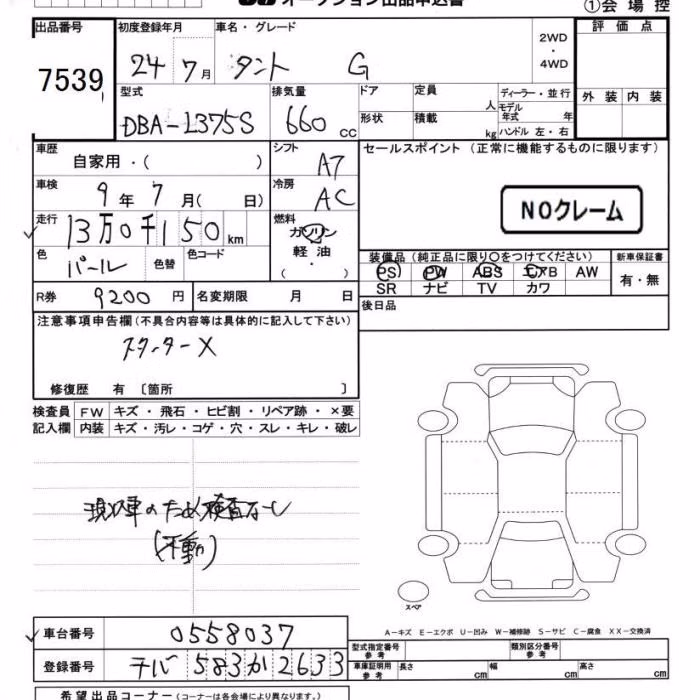 オークション出品申込書 ①会場控
出品番号 初度登録年月 車名・グレード 評価点
7539 24 7月 タント G 2WD・4WD
型式 排気量 ドア 定員 人 ディーラー・並行 外装 内装
DBA-L375S 660cc 形状 積載 kg モデル年式 年
ハンドル 左・右
車歴 自家用・( ) シフト A7 セールスポイント(正常に機能するものに限ります)
車検 9年7月( 日) 冷房 AC
NOクレーム
走行 13万0千150km 燃料 ガソリン・軽油・( )
色 パール 色替 色コード
装備品(純正品に限り〇をつけてください) 新車保証書
PS PW ABS エアB AW 有・無
SR ナビ TV カワ
R券 9200円 名変期限 月 日 後日品
注意事項申告欄(不具合内容等は具体的に記入して下さい)
スターターX
修復歴 有 〔箇所 〕
検査員 FW キズ・飛石・ヒビ割・リペア跡・×要
記入欄 内装 キズ・汚レ・コゲ・穴・スレ・キレ・破レ
現状車のため検査なし
(不動)
スペア
A-キズ E-エクボ U-凹み W-補修跡 S-サビ C-腐食 XX-交換済
車台番号 0558037
型式指定番号 参考 類別区分番号 参考
登録番号 チバ 583 か 2633
車庫証明用 参考 長さ cm 幅 cm 高さ cm
希望出品コーナー(コーナーは各会場により異なります。)